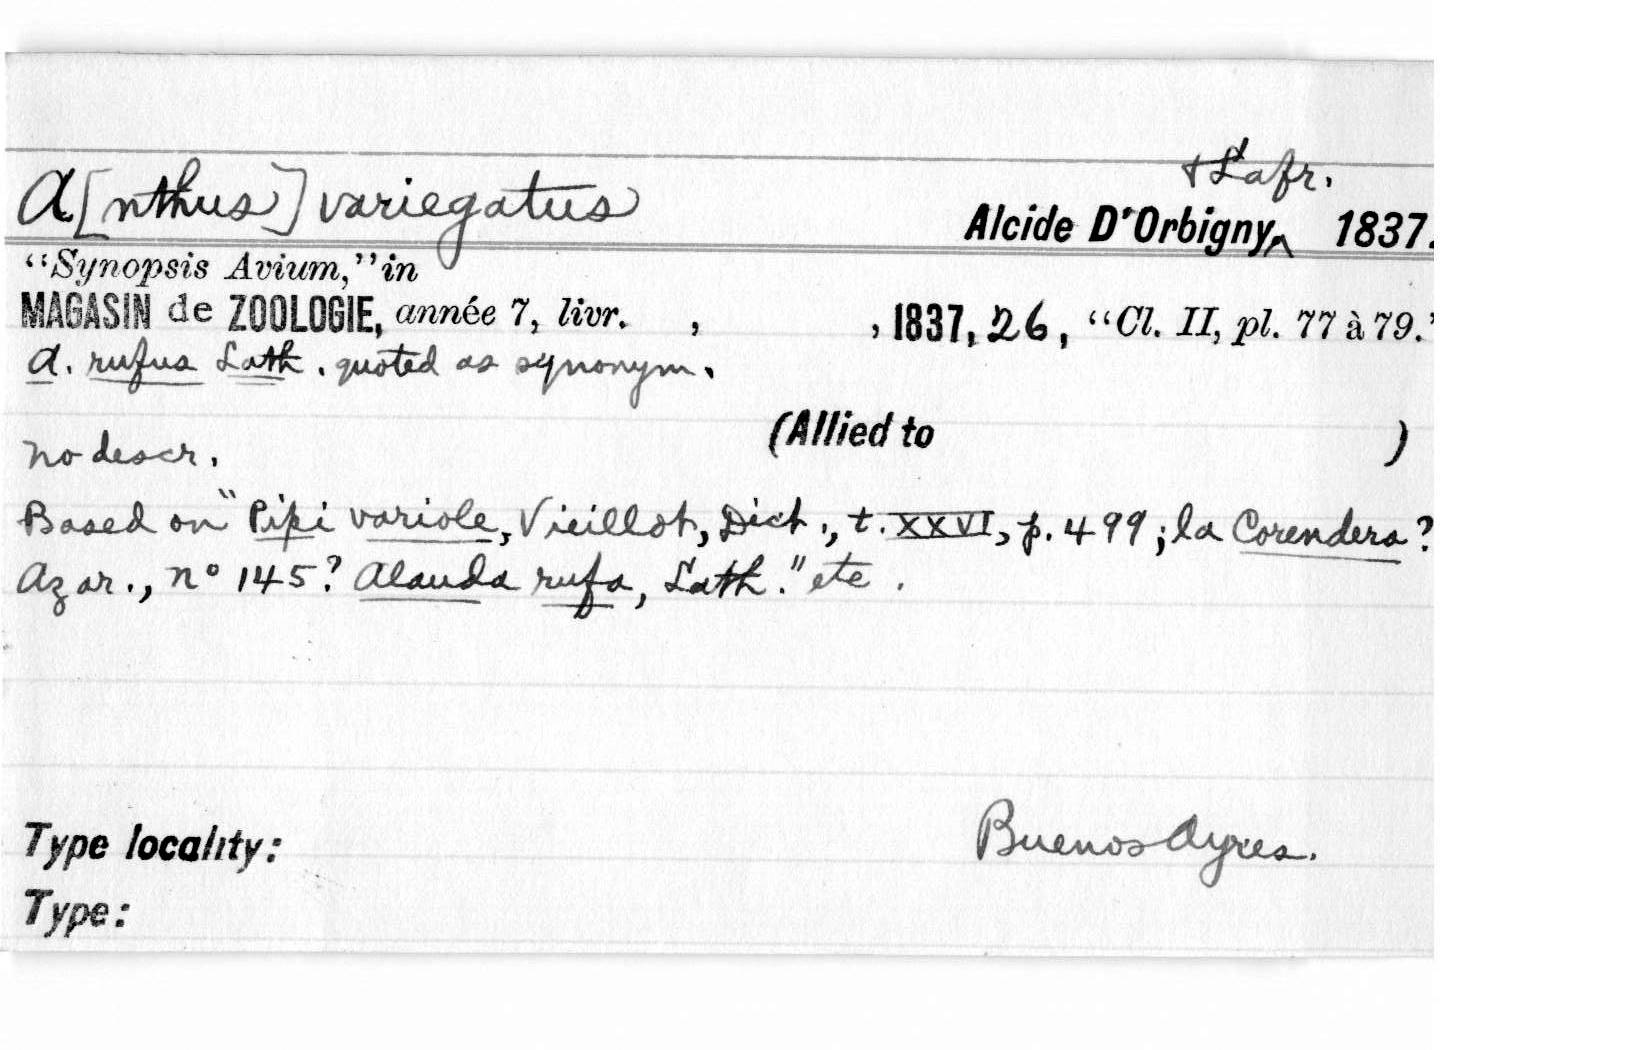 A[nthus] variegatus
+ Lafr.
Alcide D'Orbigny^ 1837.
"Synopsis Avium," in
MAGASIN de ZOOLOGIE, année 7, livr. , , 1837, 26, "Cl. II, pl. 77 à 79."
A. rufus Lath. quoted as synonym.
(Allied to )
No descr.
Based on "Pipi variole, Vieillot, Dict., t. XXVI, p. 499; la Corendera?
Azar., no 145? Alauda rufa, Lath." etc.
Type locality: Buenos Ayres.
Type: